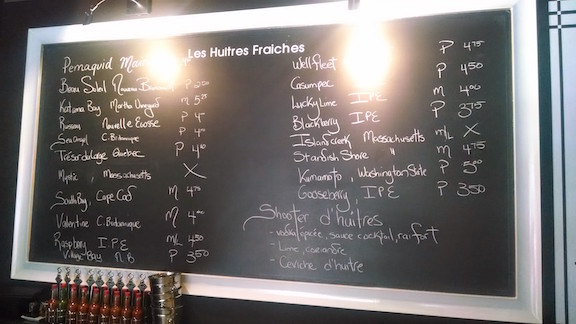 Les Huîtres Fraîches
Pemaquid
Beau Soleil P
Katama Bay Martha Vineyard M 5.75
Nouvelle Ecosse P 4
Sea Angel C. Britannique P 4
Trésor du large Quebec P 4.00
Mystic, Massachusetts X
South Bay, Cape Cod M 4.75
Valentine C. Britannique M 4.00
Raspberry I P E M/L 4.50
Village Bay N.B P 3.50
Wellfleet P 4.75
Cascumpec P 4.50
Lucky Lime I P E M 4.00
Blackberry I P E P 3.75
Island creek Massachusetts M/L X
Standish Shore M 4.75
Kumamoto, Washington State P 5.00
Gooseberry I P E P 3.50
Shooter d'huîtres
- vodka épicée, sauce cocktail, raifort
- Lime, coriandre
- Céviche d'huitre